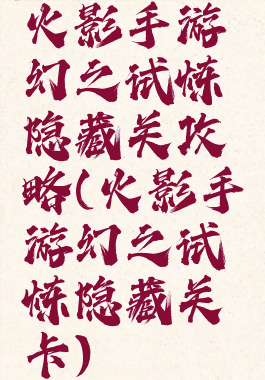 火影手游
幻之试炼
隐藏关攻
略(火影手
游幻之试
炼隐藏关
卡)